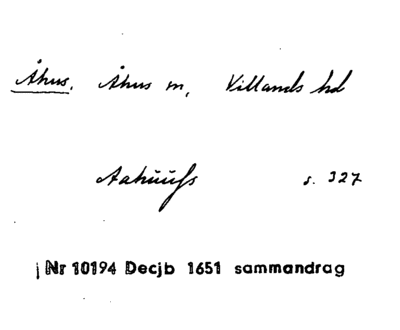 Åhus. Åhus m, Villands hd
Aahuußs s. 327
Nr 10194 Decjb 1651 sammandrag